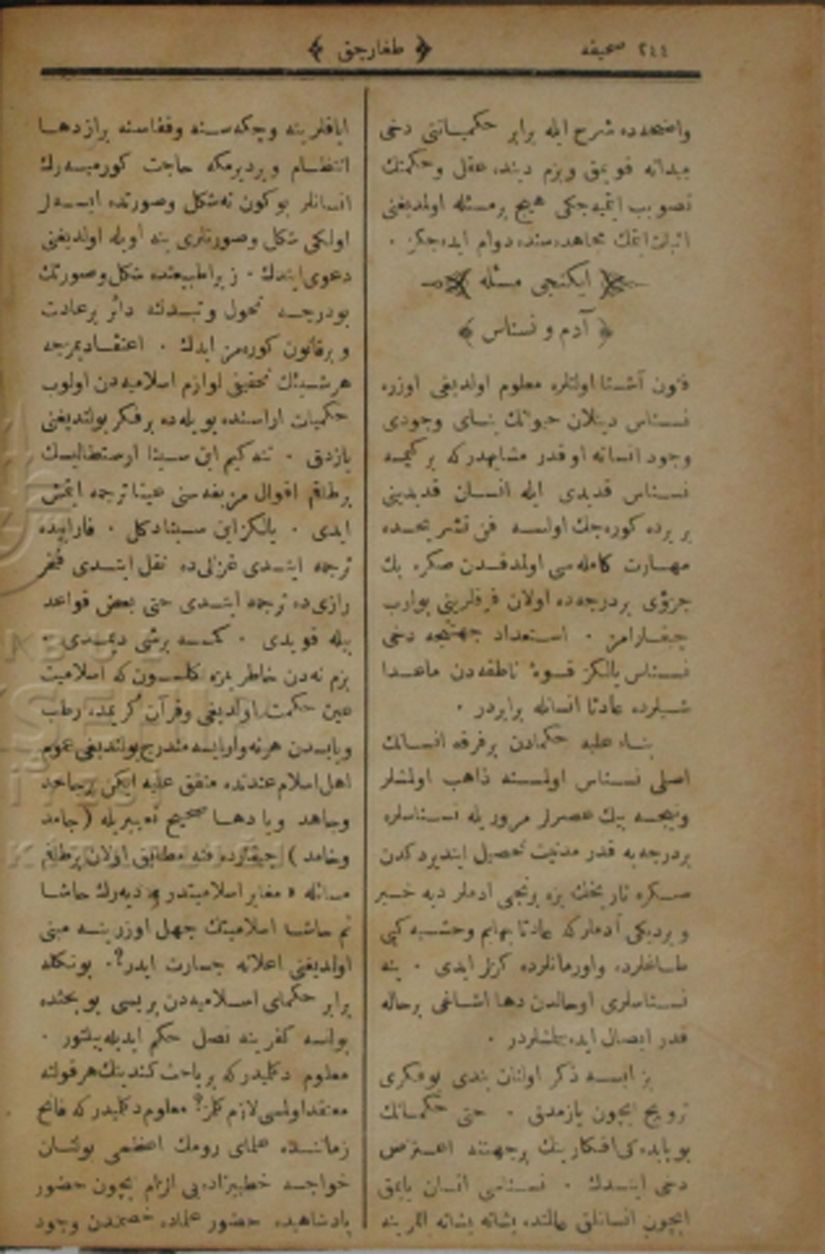 ٢٤٤ صحیفه
﴿ طغارجق ﴾
واضحه‌ده شرح ایله برابر حکمیاتنی دخی
میدانه قویمق وبزم دینده عقل وحکمتك
تصویب ایتمیه‌جکی هیچ برمسئله اولمدیغنی
اثبات ایتمك مجاهده‌سنده دوام ایده‌جکز .
ایکنجی مسئله
﴿ آدم و نسناس ﴾
فنون آشنا اولنلره معلوم اولدیغی اوزره
نسناس دینلان حیوانك بنای وجودی
وجود انسانه اوقدر مشابهدرکه برکیمسه
نسناس قدیدی ایله انسان قدیدینی
بر یرده کوره‌جك اولسه فن تشریحده
مهارت کامله‌سی اولمدقدن صکره پك
جزؤی بردرجه‌ده اولان فرقلرینی بولوب
چیقارامز . استعداد جهتیجه دخی
نسناس یالکز قوهٔ ناطقه‌دن ماعدا
شیلرده عادتا انسانله برابردر .
بناء علیه حکمادن برفرقه انسانك
اصلی نسناس اولمسنه ذاهب اولمشلر
ونیجه بیك عصرلر مروریله نسناسلره
بردرجه‌یه قدر مدنیت تحصیل ایتدیردکدن
صکره تاریخك بزه برنجی ادملر دیه خبر
ویردیکی آدملرکه عادتا بهایم وحشیه کبی
طاغلرده واورمانلرده کزر ایدی . ینه
نسناسلری اوحالدن دها اشاغی برحاله
قدر ایصال ایده‌بیلمشلردر .
بز ایسه ذکر اولنان بندی بوفکری
ترویج ایچون یازمدق . حتی حکمانك
بوبابده‌کی افکارینك برجهتنه اعتراض
دخی ایتدك . نسناسی انسان یاپمق
ایچون انسانلق عالمنده یشایه یشایه اللرینه
ایاقلرینه وچکه‌سنه وقفاسنه برازدها
انتظام ویردیرمکه حاجت کورمیه‌رك
انسانلر بوکون نه‌شکل وصورتده ایسه‌لر
اولکی شکل وصورتلری ینه اویله اولدیغنی
دعوی ایتدك . زیرا طبیعتده شکل وصورتك
بودرجه تحول وتبدلنه دائر برعادت
وبرقانون کوره‌مز ایدك . اعتقادیمزجه
هرشیئك تحقیقی لوازم اسلامیه‌دن اولوب
حکمیات اراسنده بویله‌ده برفکر بولندیغنی
یازدق . نته‌کیم ابن سینا ارسطالیسك
برطاقم اقوال مزیفه‌سنی عینا ترجمه ایتمش
ایدی . یالکز ابن سینا دکل . فارابیده
ترجمه ایتدی غزالی‌ده نقل ایتدی فخر
رازی‌ده ترجمه ایتدی حتی بعض قواعد
بیله قویدی . کمسه برشی دیمدی .
بزم نه‌دن خاطریمزه کلسون که اسلامیت
عین حکمت اولدیغی وقرآن کریمده رطب
ویابسدن هرنه وارایسه مندرج بولندیغی عموم
اهل اسلام عندنده متفق علیه ایکن برجاحد
وجاهد ویا دها صحیح تعبیریله (جامد
وخامد) چیقارده فنه مطابق اولان برطاقم
مسائله « مغایر اسلامیتدر » دیه‌رك حاشا
ثم حاشا اسلامیتك جهل اوزرینه مبنی
اولدیغنی اعلانه جسارت ایدر؟. بونکله
برابر حکمای اسلامیه‌دن بریسی بوبحثده
بولنسه کفرینه نصل حکم ایدیله‌بیلیور .
معلوم دکلیدرکه برباحث کندینك هرقولنه
معتقد اولمسی لازم کلمز؟ معلوم دکلیدرکه فاتح
زماننده علمای رومك اعظمی بولنان
خواجه خطیبزاده‌یی الزام ایچون حضور
پادشاهیده حضور علماده خصمدن وجود